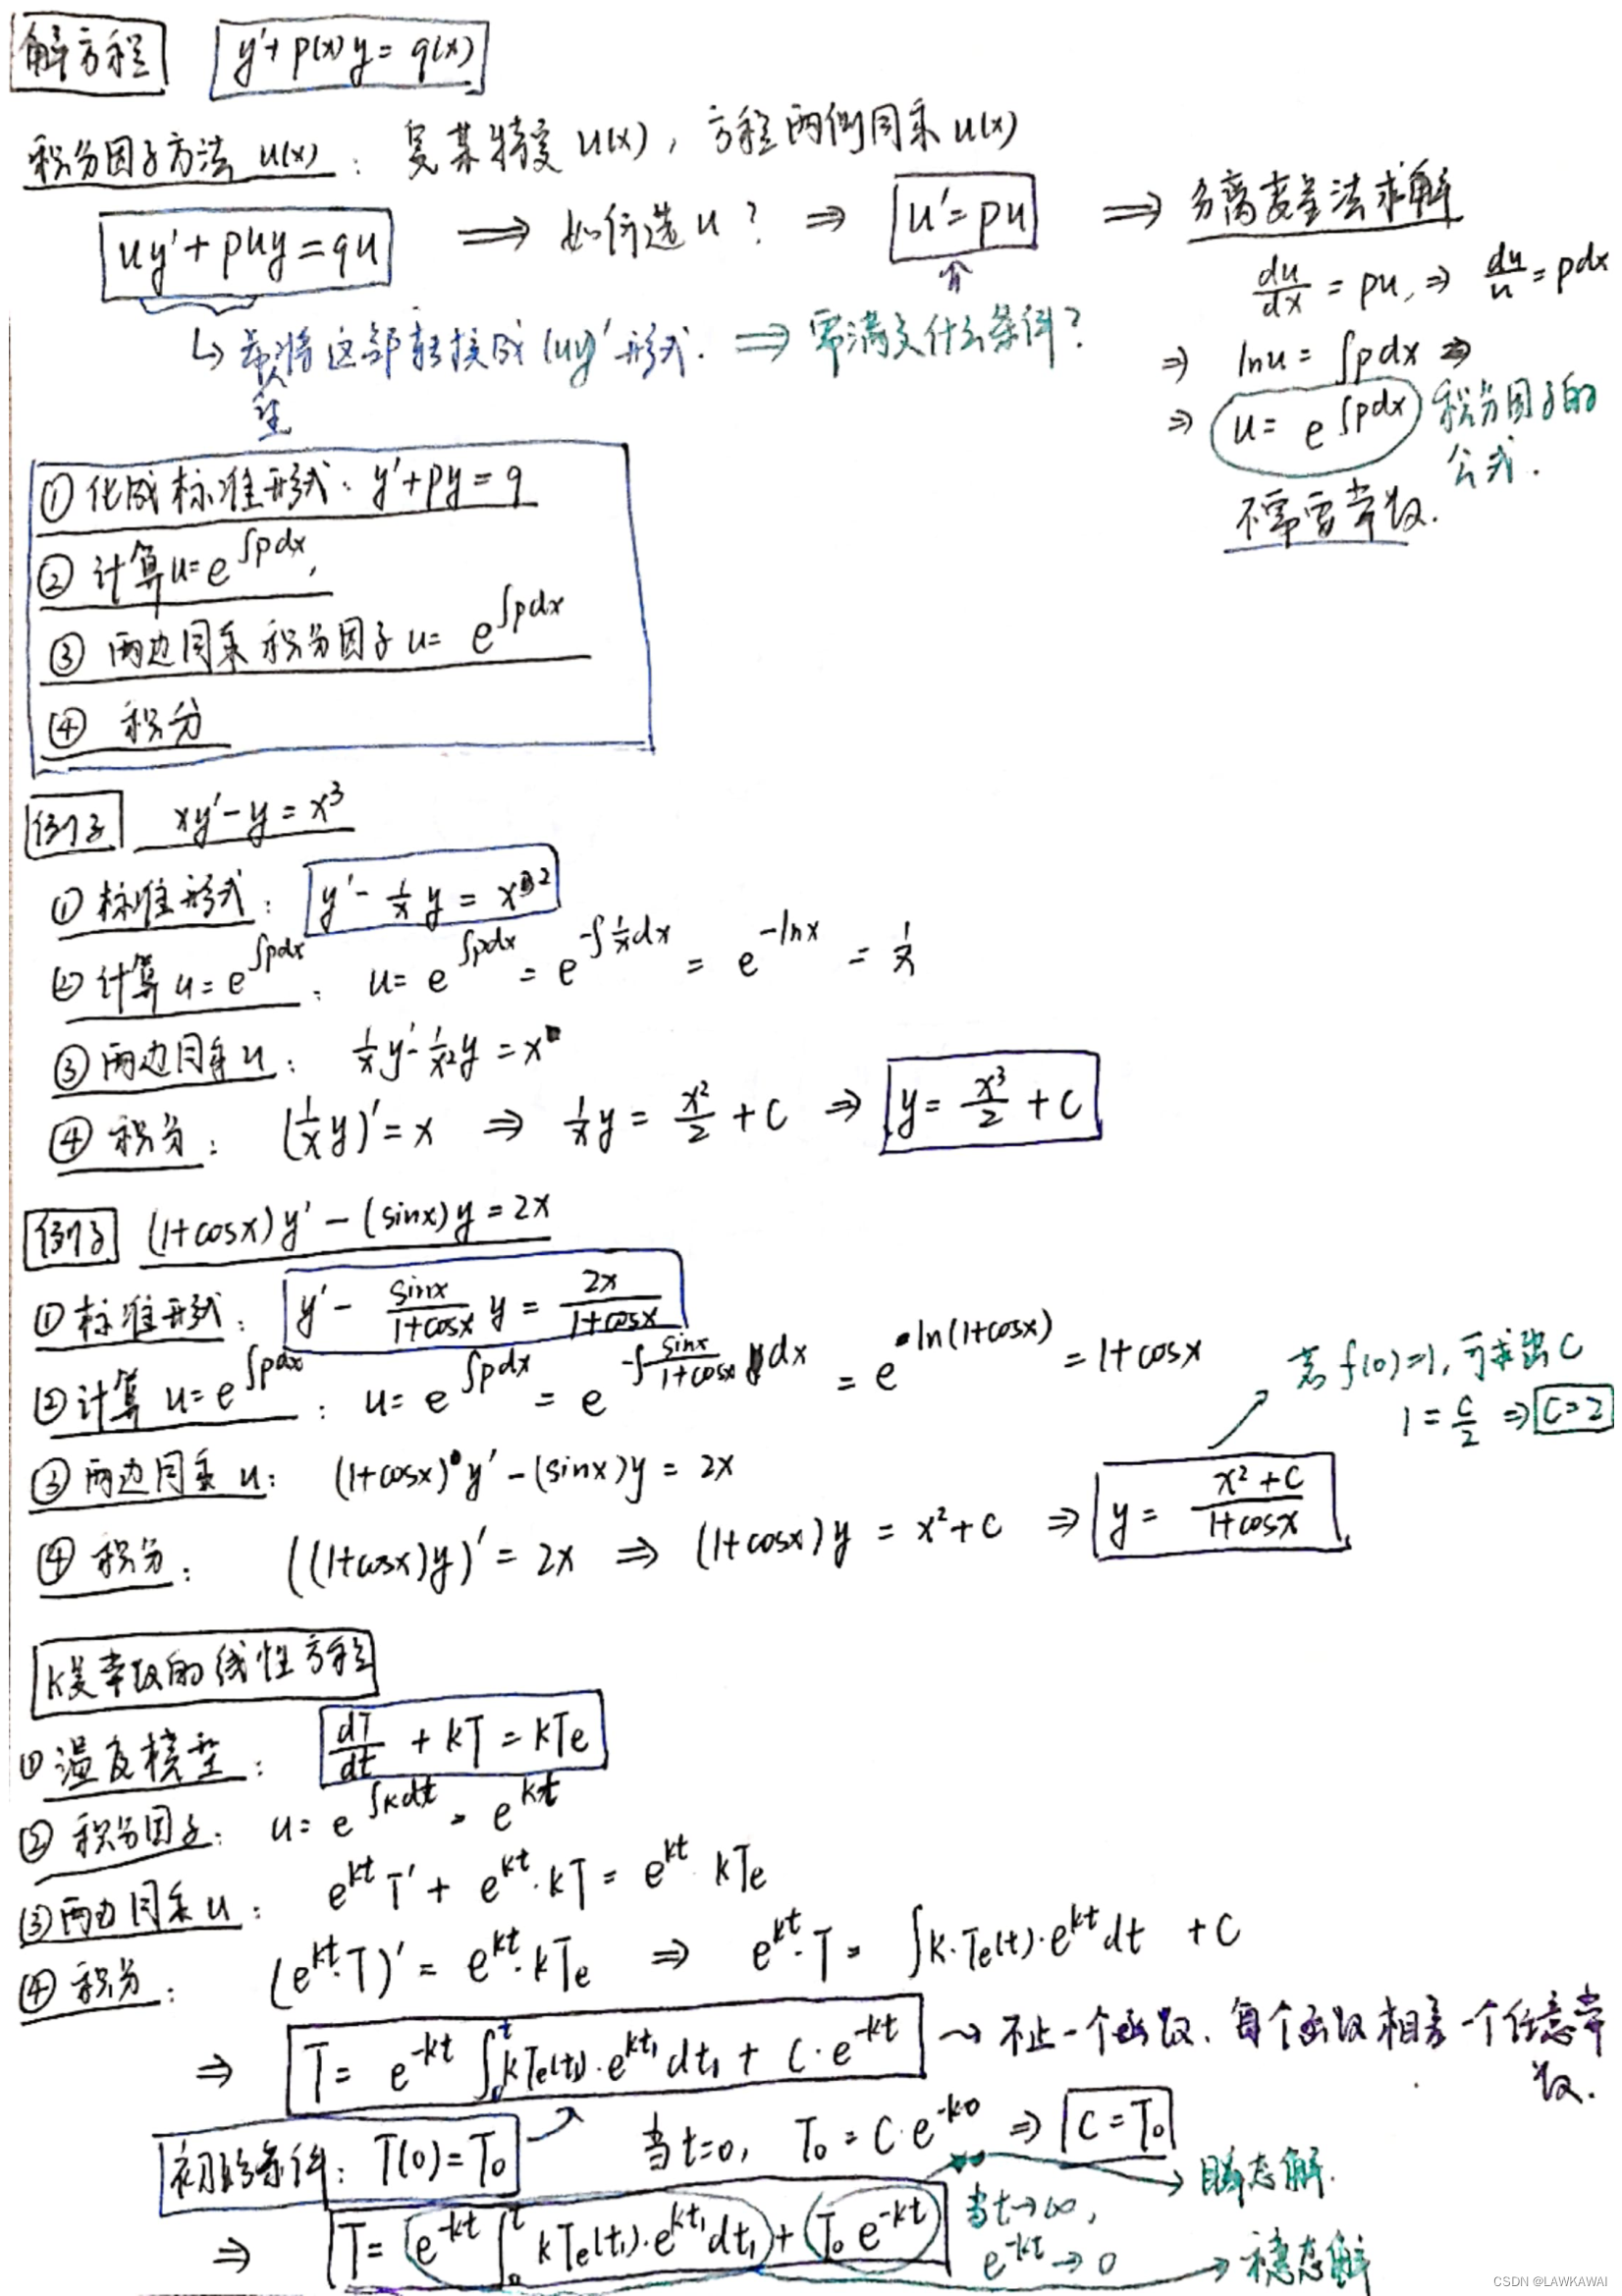 解方程 y'+p(x)y=q(x)
积分因子方法 u(x): 某 u(x), 方程两侧同乘 u(x)
uy'+puy=qu ⟹ 如何选u? ⇒ u'=pu ⟹ 分离变量法求解
du/dx = pu, ⇒ du/u = pdx
↳ 希望将这部转换成 (uy)' 形式. ⟹ 需满足什么条件?
⇒ lnu = ∫pdx ⇒
⇒ u= e^∫pdx 积分因子的
公式.
不需要常数.
① 化成标准形式: y'+py=q
② 计算u=e^∫pdx,
③ 两边同乘 积分因子 u= e^∫pdx
④ 积分
例子 xy'-y=x³
① 标准形式: y'- 1/x y = x²
② 计算 u=e^∫pdx: u= e^∫pdx = e^-∫1/x dx = e^-lnx = 1/x
③ 两边同乘 u: 1/x y'- 1/x² y = x
④ 积分: (1/x y)'= x ⇒ 1/x y = x²/2 + C ⇒ y= x³/2 + C
例子 (1+cosx)y'-(sinx)y=2x
① 标准形式: y'- sinx/(1+cosx) y = 2x/(1+cosx)
② 计算 u=e^∫pdx: u= e^∫pdx = e^-∫sinx/(1+cosx) dx = e^ln(1+cosx) = 1+cosx
若 f(0)=1, 可求出C
1 = C/2 ⇒ C=2
③ 两边同乘 u: (1+cosx) y'-(sinx)y = 2x
④ 积分: ((1+cosx)y)'= 2x ⇒ (1+cosx)y = x²+C ⇒ y= (x²+C)/(1+cosx)
k是常数的线性方程
① 温度模型: dT/dt + kT = kTe
② 积分因子: u= e^∫kdt = e^kt
③ 两边同乘u: e^kt T' + e^kt·kT = e^kt kTe
④ 积分: (e^kt·T)' = e^kt·kTe ⇒ e^kt·T = ∫k·Te(t)·e^kt dt +C
⇒ T= e^-kt ∫₀^t kTe(t₁)·e^kt₁ dt₁ + C·e^-kt → 不止一个函数. 每个函数相差一个任意常
数.
初始条件: T(0)=T₀ → 当t=0, T₀ = C·e^-k·0 ⇒ C=T₀
→ 瞬态解.
⇒ T= e^-kt ∫₀^t kTe(t₁)·e^kt₁ dt₁ + T₀ e^-kt 当t→∞,
e^-kt→0 → 稳态解
CSDN @LAWKAWAI